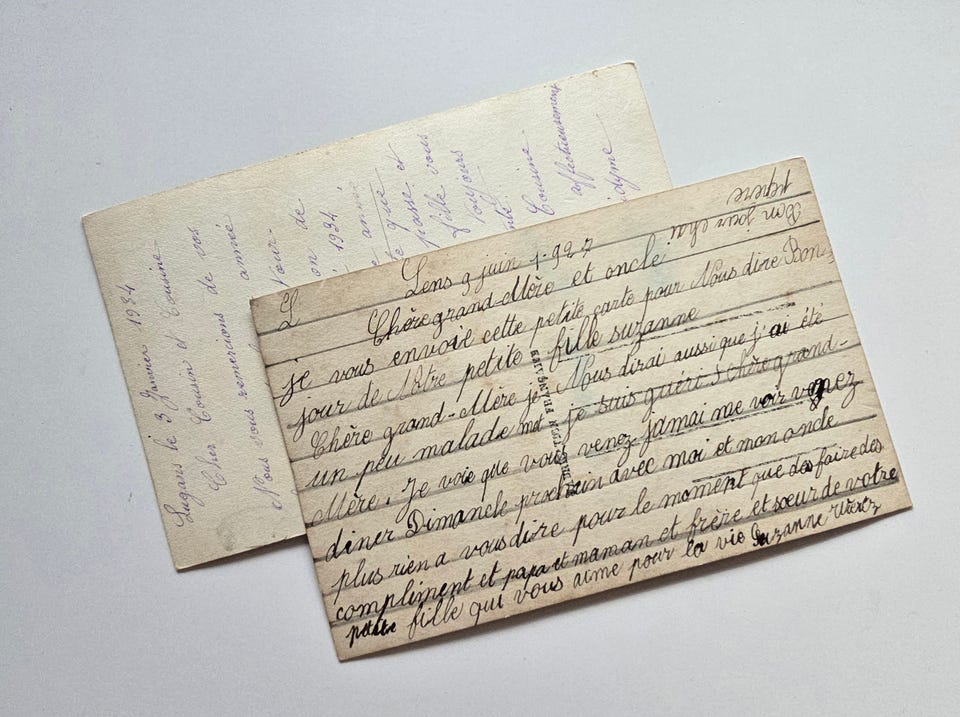 Lugans le 3 Janvier 1934
Cher Cousin et Cousine
Nous vous remercions de vos
année
jour-
on de
1934
année
te que
passe et
fille vous
Toujours
Cousine
affectueusement
Bon jour chai
L
Lens 9 juin 1927
Chère grand-Mère et oncle
je vous envoie cette petite carte pour Nous dire Bon-
jour de Nôtre petite fille suzanne
Chère grand-Mère je Nous dirai aussi que j'ai été
un peu malade je suis guéri chère grand-
Mère. Je voie que vous venez jamai me voir venez
diner Dimanche prochin avec moi et mon oncle
plus rien a vous dire pour le moment que des faire des
compliment et papa et maman et frère et sœur de votre
petite fille qui vous aime pour la vie Suzanne